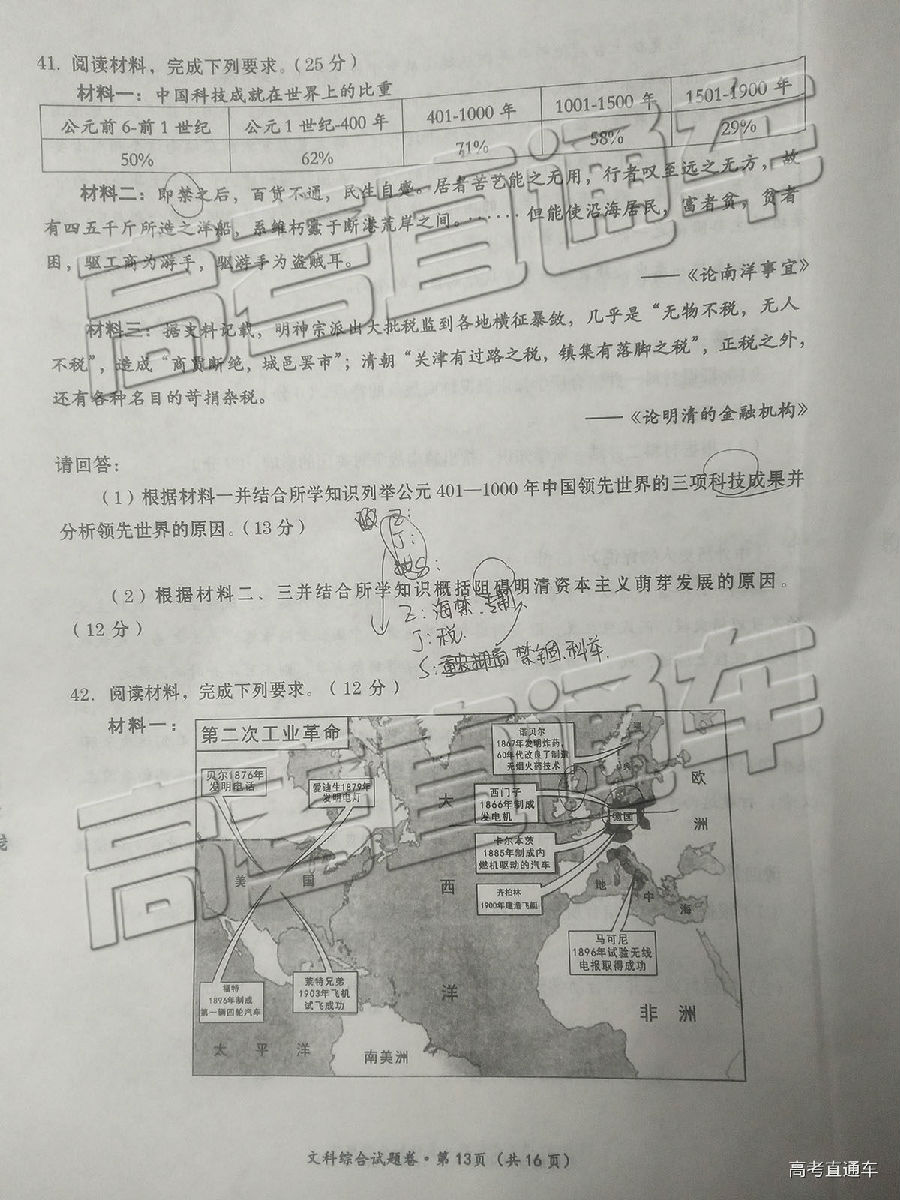 41. 阅读材料，完成下列要求。（25分）
材料一：中国科技成就在世界上的比重
公元前6-前1世纪 公元1世纪-400年 401-1000年 1001-1500年 1501-1900年
50% 62% 71% 58% 29%
材料二：即禁之后，百货不通，民生自蹙。居者苦艺能之无用，行者叹至远之无方，故
有四五千斤所造之洋船，系维朽蠹于断港荒岸之间。……但能使沿海居民，富者贫，贫者
困，驱工商为游手，驱游手为盗贼耳。
——《论南洋事宜》
材料三：据史料记载，明神宗派出大批税监到各地横征暴敛，几乎是“无物不税，无人
不税”，造成“商贾断绝，城邑罢市”；清朝“关津有过路之税，镇集有落脚之税”，正税之外，
还有各种名目的苛捐杂税。
——《论明清的金融机构》
请回答：
（1）根据材料一并结合所学知识列举公元401—1000年中国领先世界的三项科技成果并
分析领先世界的原因。（13分）
Z:
J:
S:
（2）根据材料二、三并结合所学知识概括阻碍明清资本主义萌芽发展的原因。
（12分）
Z: 海禁.专制
J: 税.
S:
42. 阅读材料，完成下列要求。（12分）
材料一：
第二次工业革命
贝尔1876年
发明电话
爱迪生1879年
发明电灯
诺贝尔
1867年发明炸药，
60年代改良了制造
无烟火药技术
西门子
1866年制成
发电机
德国
卡尔本茨
1885年制成内
燃机驱动的汽车
齐柏林
1900年建造飞艇
马可尼
1896年试验无线
电报取得成功
福特
1896年制成
第一辆四轮汽车
莱特兄弟
1903年飞机
试飞成功
美国
大西洋
欧洲
地中海
非洲
太平洋
南美洲
文科综合试题卷·第13页（共16页）
高考直通车
高考直通车
高考直通车